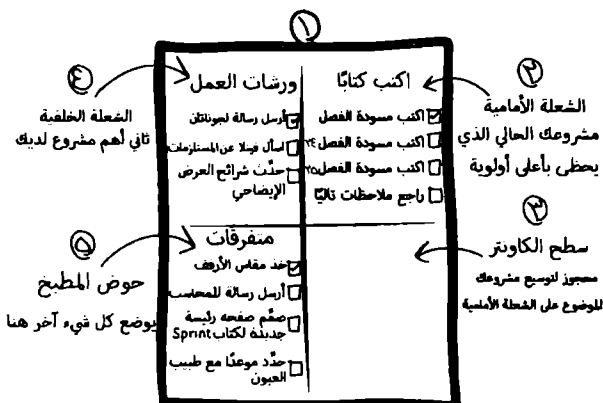 ١
٢
الشعلة الأمامية
مشروعك الحالي الذي
يحظى بأعلى أولوية
اكتب كتابًا
اكتب مسودة الفصل
اكتب مسودة الفصل ٢٤
اكتب مسودة الفصل ٢٥
راجع ملاحظات تاليًا
٣
سطح الكاونتر
محجوز لتوسيع مشروعك
الموضوع على الشعلة الأمامية
٤
الشعلة الخلفية
ثاني أهم مشروع لديك
ورشات العمل
أرسل رسالة لجوناثان
اسأل فيلا عن المستلزمات
حدّث شرائح العرض
الإيضاحي
٥
حوض المطبخ
يوضع كل شيء آخر هنا
متفرقات
خذ مقاس الأرفف
أرسل رسالة للمحاسب
صمّم صفحة رئيسة
جديدة لكتاب Sprint
حدّد موعدًا مع طبيب
العيون